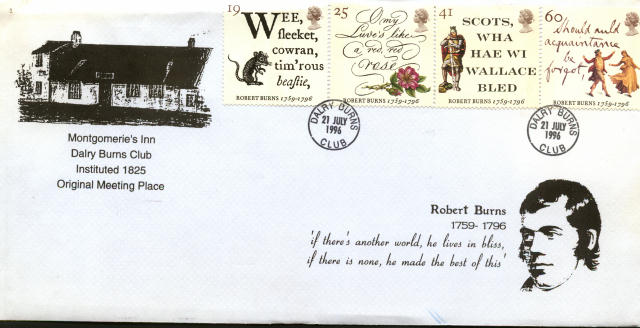 19
WEE,
fleeket,
cowran,
tim'rous
beastie,
ROBERT BURNS 1759-1796
25
O my
Luve's like
a red, red
rose
ROBERT BURNS 1759-1796
41
SCOTS,
WHA
HAE WI
WALLACE
BLED
ROBERT BURNS 1759-1796
60
Should auld
acquaintance
be
forgot,
ROBERT BURNS 1759-1796
DALRY BURNS
21 JULY
1996
CLUB
DALRY BURNS
21 JULY
1996
CLUB
Montgomerie's Inn
Dalry Burns Club
Instituted 1825
Original Meeting Place
Robert Burns
1759- 1796
'if there's another world, he lives in bliss,
if there is none, he made the best of this'